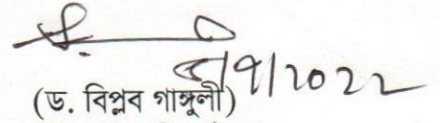 ৫/৭/২০২২
(ড. বিপ্লব গাঙ্গুলী)